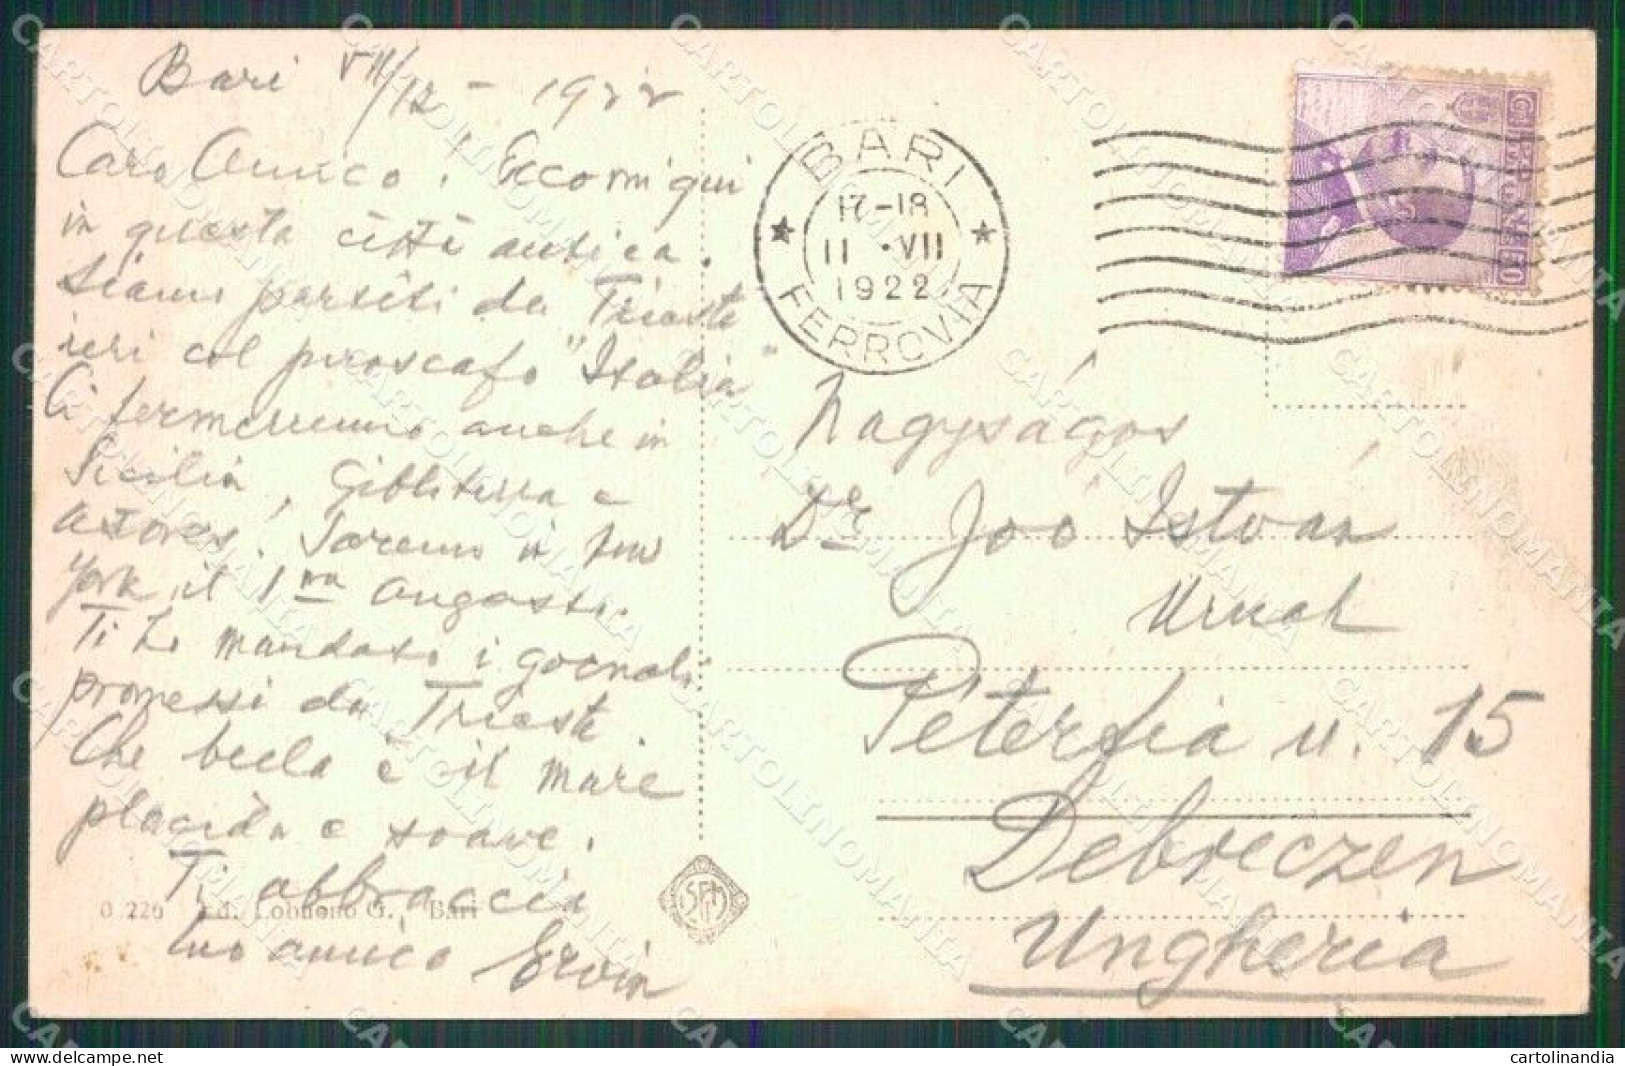 Bari VII/12 - 1922
Caro Amico! Eccomi qui
in questa città antica.
Siamo partiti da Trieste
ieri col piroscafo "Italia"
Ci fermeremo anche in
Sicilia, Gibilterra e
Azores. Saremo in New
York il 1mo Augosto.
Ti ho mandato i giornali
promessi da Trieste.
Che bella è il mare
placida e soave.
Ti abbraccia
tuo amico Ervin
0 226 Ed. Lobuono G. Bari
BARI
17-18
11 · VII
1922
FERROVIA
Nagyságos
Dr. Joó István
Urnak
Péterfia u. 15
Debreczen
Ungheria
CARTOLINOMANIA
cartolinandia